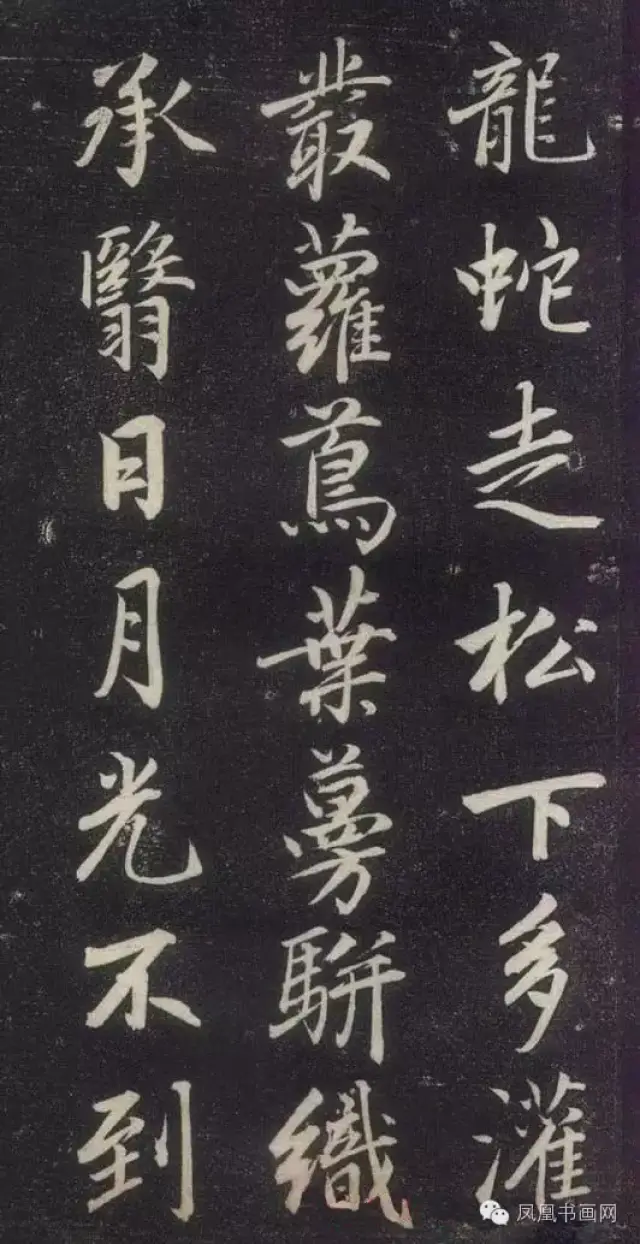 龍虵走松下多灌
叢蘿蔦葉蔓駢織
承翳日月光不到
凤凰书画网